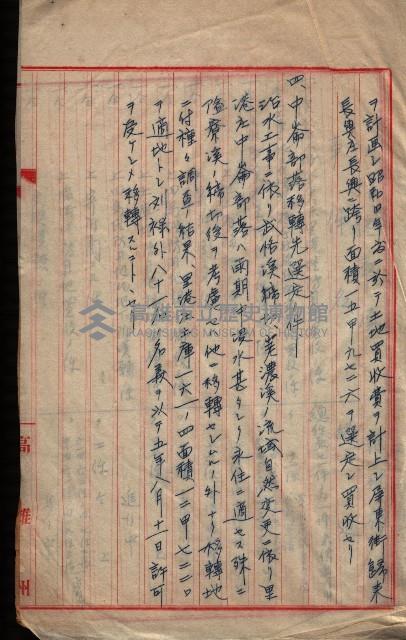 ヲ計画シ昭和四年度ニ於テ土地買收費ヲ計上シ屏東街歸来
長興庄長興ニ跨リ面積五甲九七二六ヲ選定シ買收セリ
四、中崙部落移轉先選定ノ件
治水工事ニ依リ武洛溪締切、荖濃溪ノ流域自然変更ニ依リ里
港庄中崙部落ハ雨期ノ浸水甚シク永住ニ適セス殊ニ
隘寮溪ノ締切後ヲ考慮シ他ニ移轉セシムルノ外ナク移轉地
ニ付種々調査ノ結果里港庄土庫一六一ノ四面積一二甲七二二〇
ヲ適地トシ列禄外八十一名ノ名義ヲ以テ五年八月十一日許可
ヲ受ケシメ移轉スルコトヽセリ
高雄市立歷史博物館
高雄州